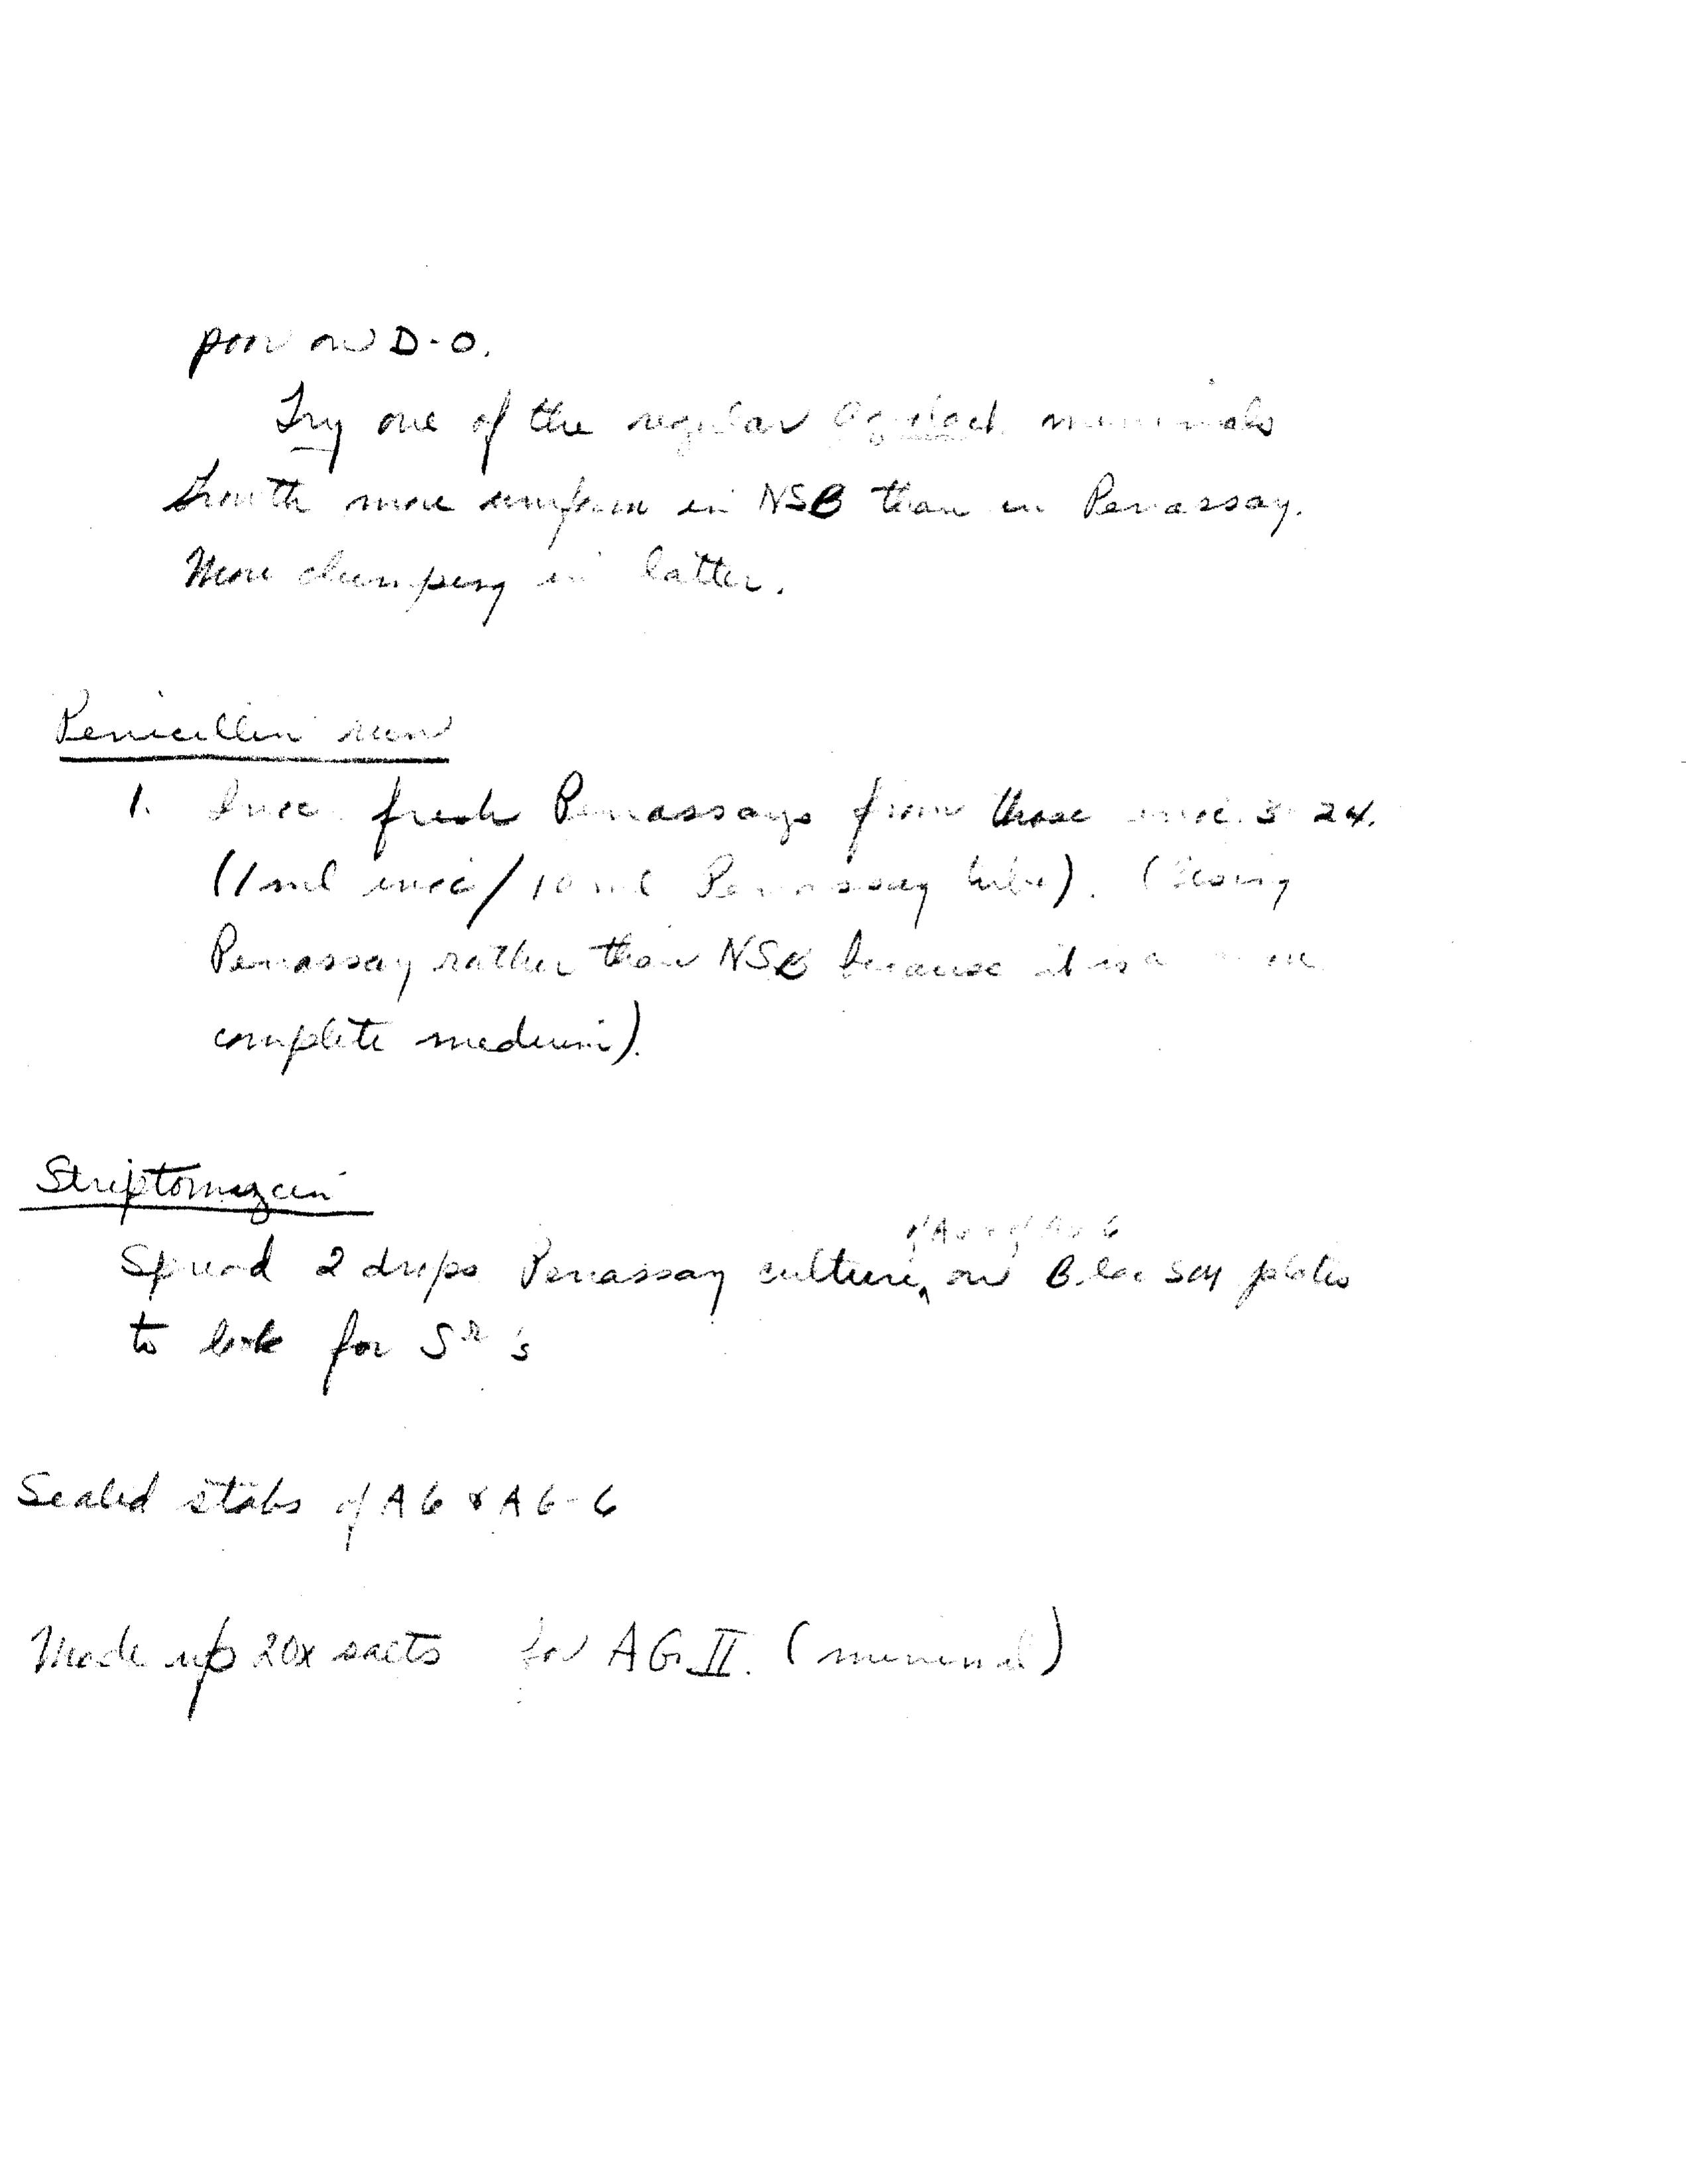 poor on D-O.
Try one of the regular minimals
Growth more uniform in NSB than in Penassay.
More clumping in latter.
Penicillin run
1. Inoc. fresh Penassays from those inoc. 3-24.
(1 ml inoc/10 ml Penassay tube). (Using
Penassay rather than NSB because it is a more
complete medium).
Streptomycin
Spread 2 drops Penassay culture on B lac SM plates
to look for Sʳ's
Sealed stabs of A6 & A6-6
Made up 20x salts for AG II. (minimal)